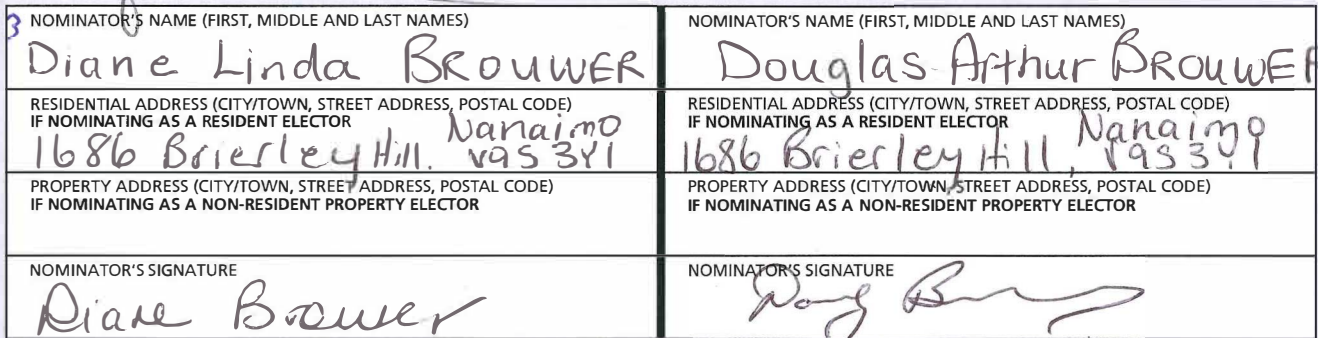 3
NOMINATOR'S NAME (FIRST, MIDDLE AND LAST NAMES)
Diane Linda BROUWER
RESIDENTIAL ADDRESS (CITY/TOWN, STREET ADDRESS, POSTAL CODE)
IF NOMINATING AS A RESIDENT ELECTOR
Nanaimo
1686 Brierley Hill. V9S 3Y1
PROPERTY ADDRESS (CITY/TOWN, STREET ADDRESS, POSTAL CODE)
IF NOMINATING AS A NON-RESIDENT PROPERTY ELECTOR
NOMINATOR'S SIGNATURE
Diane Brouwer
NOMINATOR'S NAME (FIRST, MIDDLE AND LAST NAMES)
Douglas Arthur BROUWER
RESIDENTIAL ADDRESS (CITY/TOWN, STREET ADDRESS, POSTAL CODE)
IF NOMINATING AS A RESIDENT ELECTOR
Nanaimo
1686 Brierley Hill, V9S 3Y1
PROPERTY ADDRESS (CITY/TOWN, STREET ADDRESS, POSTAL CODE)
IF NOMINATING AS A NON-RESIDENT PROPERTY ELECTOR
NOMINATOR'S SIGNATURE
Doug